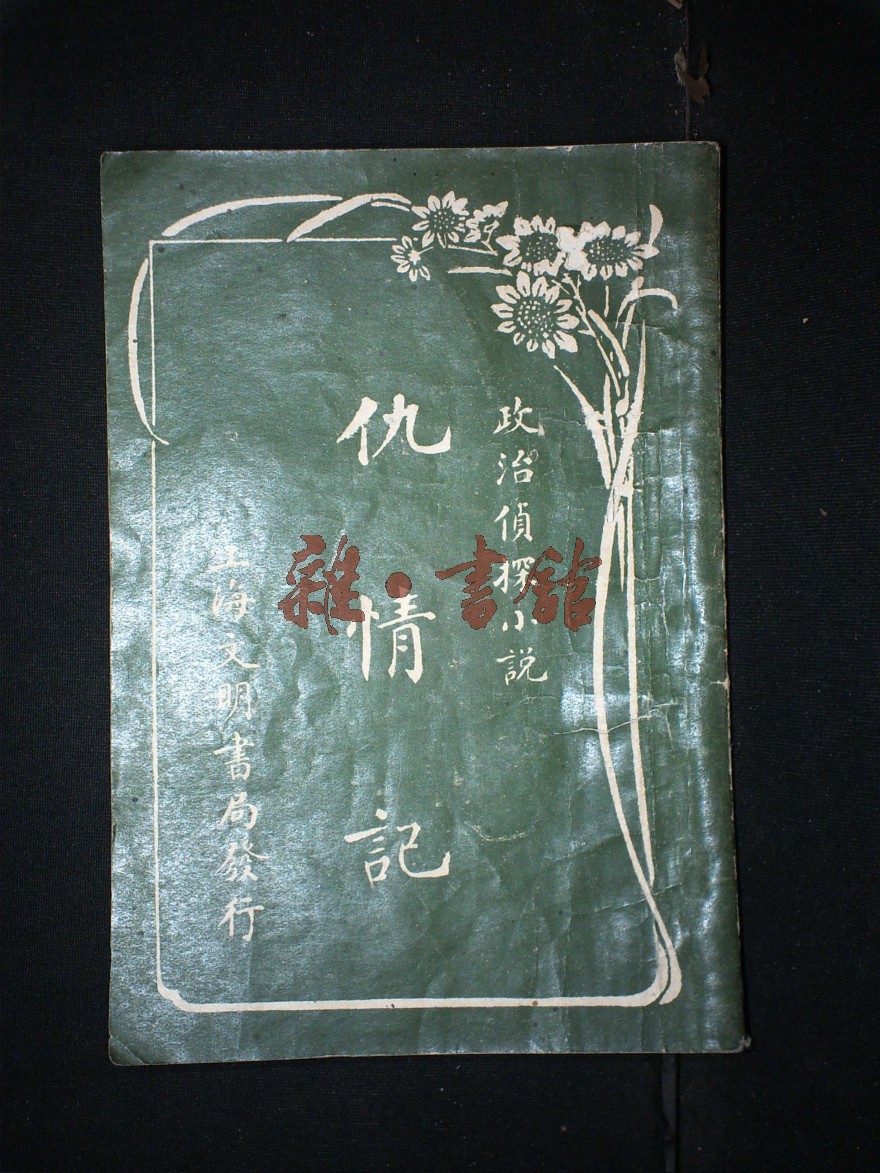 政治偵探小説
仇情記
上海文明書局發行
雜·書館